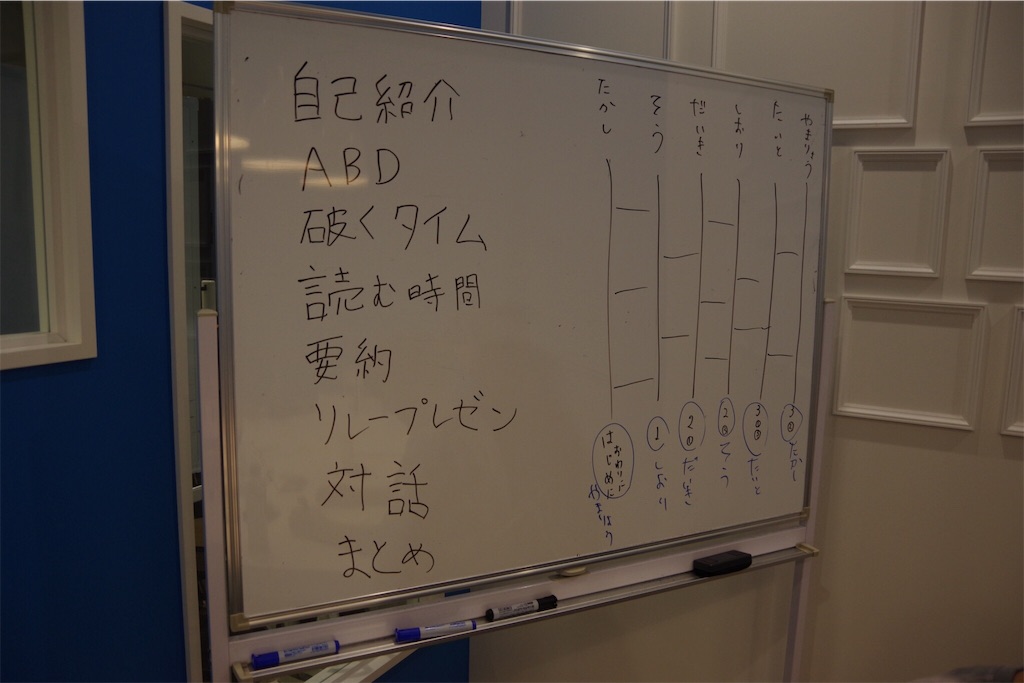 自己紹介
ABD
破くタイム
読む時間
要約
リレープレゼン
対話
まとめ
たかし
そう
だいき
しおり
たいと
やまりょう
はじめに
おわりに
1
2
2
3
3
やまりょう
しおり
だいき
そう
たいと
たかし